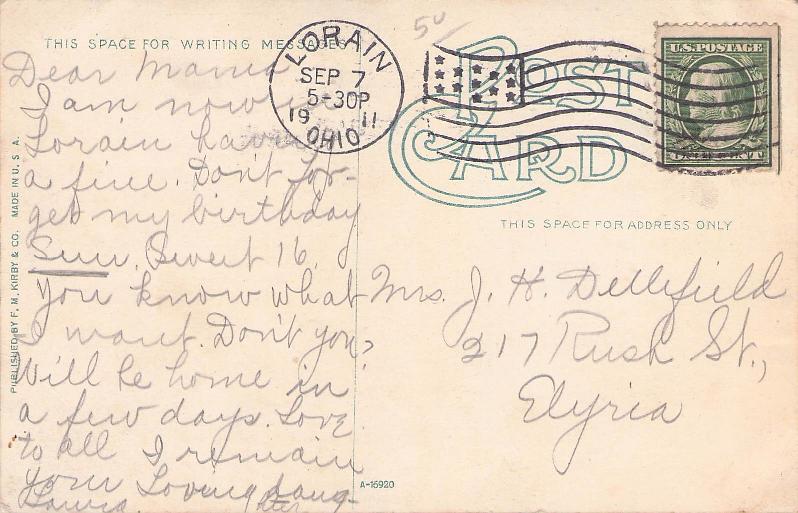 THIS SPACE FOR WRITING MESSAGES
Dear Mama
I am now in
Lorain having
a fine. Don't for-
get my birthday
Sun. Sweet 16.
You know what
I want. Don't you?
Will be home in
a few days. Love
to all I remain
your Loving daug-
hter
PUBLISHED BY F. M. KIRBY & CO. MADE IN U. S. A.
LORAIN
SEP 7
5-30P
1911
OHIO
50
POST
CARD
U.S. POSTAGE
THIS SPACE FOR ADDRESS ONLY
Mrs. J. H. Dellefield
217 Rush St.,
Elyria
A-16920